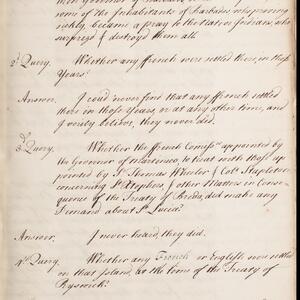 then Governor of Barbados,
some of the Inhabitants of Barbados, who growing
sickly, became a prey to the Native Indians, who
surprized & destroyed them all.
2d. Query. Whether any ffrench were settled there, in those
Years?
Answer. I could never find that any ffrench settled
there in those Years, or at any other time, and
I verily believe, they never did.
3d. Query. Whether the ffrench Comiss.rs appointed by
the Governor of Martineco, to treat with those ap
pointed by S.r Thomas Wheler & Col.o Stapleton
concerning S.t Xtophers, & other Matters in Conse-
quence of the Treaty of Breda, did make any
Demand about S.t Lucia?
Answer. I never heard they did.
4th. Query. Whether any French or English, were settled
on that Island, at the time of the Treaty of
Ryswick?